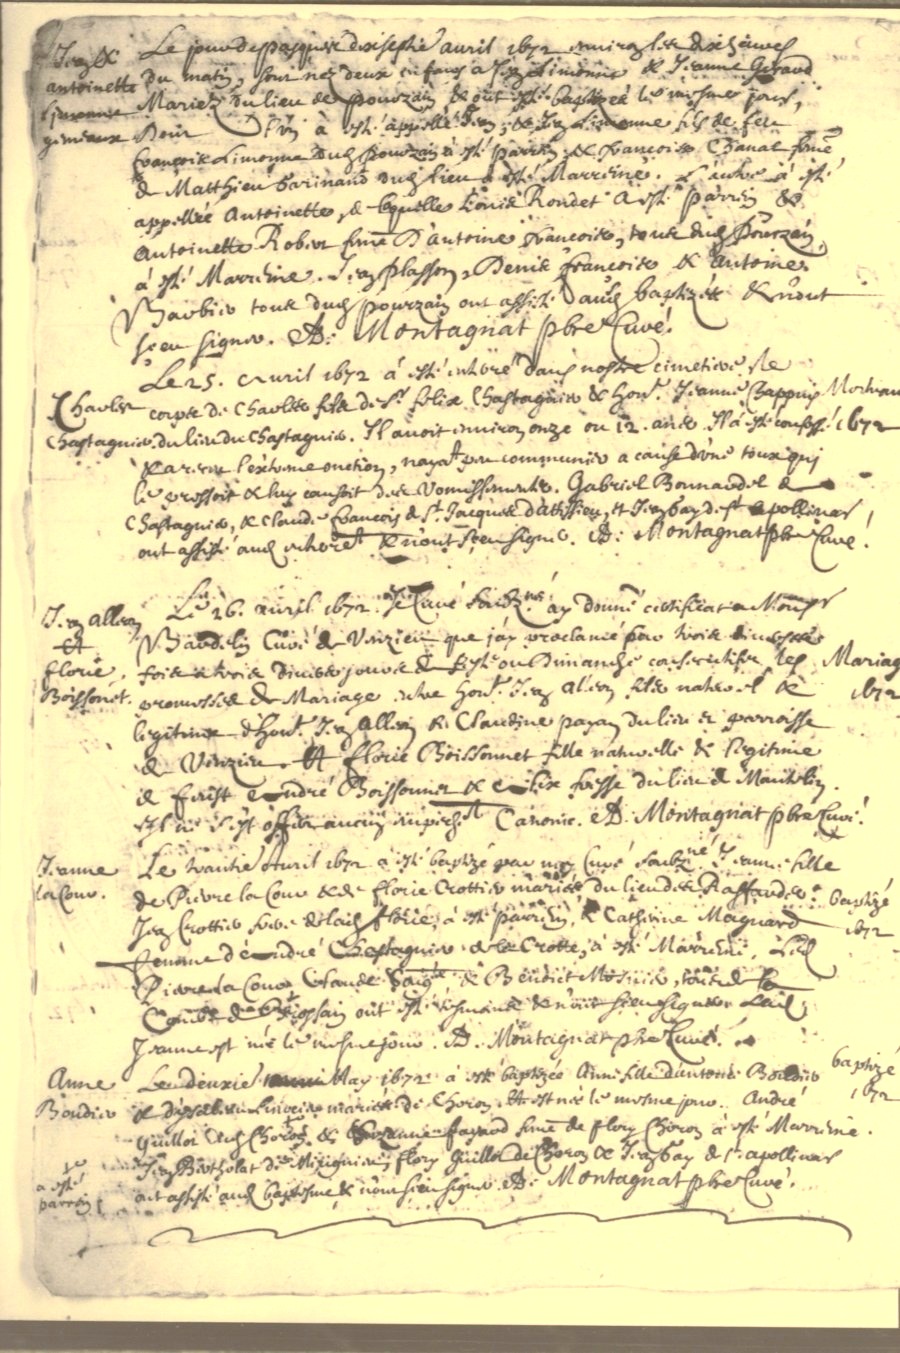 Jean &
antoinette
Limonne
gemeaux
Le jour de pasques dixseptie avril 1672 environ les dix heures
du matin, sont nez deux enfans a Jean Limonne & Jeanne Geraud
Mariez du lieu de pourzain & ont esté baptizés le mesme jour,
L'un à esté appellé Jean, & Jean Limonne fils de feu
françois Limonne dud pourzain à esté parrin & françoise Chanal feme
de Matthieu Farinaud dud lieu à esté Marreine. L'autre à esté
appellée Antoinette, de laquelle Louis Rondet A esté parrin &
Antoinette Robert feme D'antoine françois, tous dud Pourzain,
à esté Marreine. Jean plasson, Denis françois & Antoine
Barbier tous dud pourzain ont assisté aud baptizé & n'ont
sceu signer. A: Montagnat pbre Curé.
Charles
Chastagnier
Le 25. avril 1672 à esté enterré dans nostre cimetiere le
corps de Charles fils de Sr felix Chastagnier & Hont. Jeanne Chappuis
du lieu du Chastagnier. Il avoit environ onze ou 12. ans. Il à esté confessé
& a receu l'extreme onction, nayat peu communier a cause d'une toux qui
le pressoit & luy causoit des vomissements. Gabriel Bonnaudel de
Chastagnier, & Claude françois de St. Jacques d'attissieu, et Jean Gay de St apollinar
ont assisté aud enterret & n'ont sceu signer. A: Montagnat pbre Curé.
Mortuaire
1672
Jean Alleon
Et
florie
Boissonet.
Le 26. avril 1672 Je Curé soubzné ay donné certificat a Monsr
Baudelin Curé de Vinzieu que j'ay proclamé par trois diverses
fois a trois divers jours de feste ou Dimanche consecutifs les
promesses de Mariage entre Hont. Jean Aleon fils naturel &
legitime d'Hont. Jean Alleon & Claudine payan du lieu et parroisse
de Vinzieu. Et florie Boissonnet fille naturelle & legitime
de André Boissonnet & du lieu de
Il ne s'est offert aucun empescht Canonic. A: Montagnat pbre Curé.
Mariage
1672
Jeanne
la Cour.
Le trantie Avril 1672 a esté baptizé par moy Curé soubzné Jeanne fille
de Pierre la Cour & de florie Crottier mariés du lieu des Raffardes.
Jean Crottier frere de lad florie, à esté parrin, & Catherine Magnard
femme d'André Chastagnier de la Crotte, à esté Marreine. Led
Pierre la Cour, Claude & Benoict tous de la
Combe de ont esté presents & n'ont sceu signer. Lad
Jeanne est née le mesme jour. A: Montagnat pbre Curé.
baptizé
1672
Anne
Bondier
Le deuxie May 1672 à esté baptizée Anne fille d'antoine Bondier
& d'ysabeau mariés de Choron, Et est née le mesme jour. André
Guillot dud Choron & Suzanne fayard feme de flory Choron à esté Marreine.
Jean Bertholat de flory Guillot de Choron & Jean Gay de St apollinar
ont assisté aud baptesme & n'ont sceu signer. A: Montagnat pbre Curé.
a esté
parrin
baptizé
1672